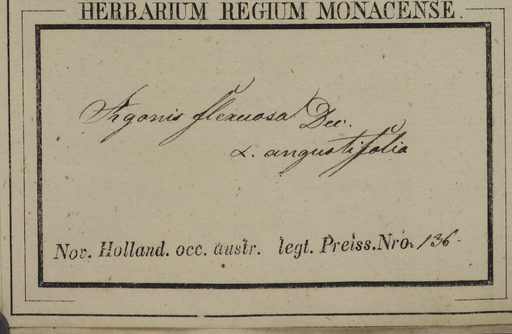 HERBARIUM REGIUM MONACENSE.
Agonis flexuosa Dec.
α. angustifolia
Nov. Holland. occ. austr. legt. Preiss. Nro. 136.